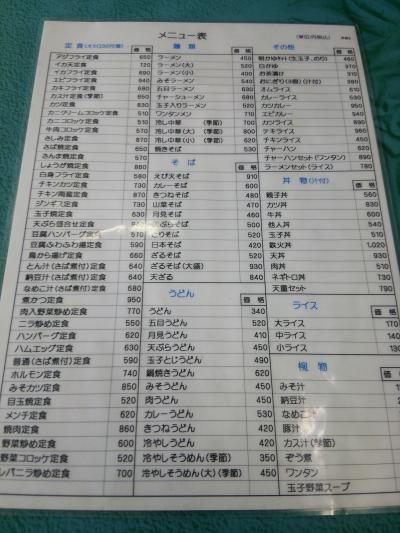 メニュー表
定食
価格
アジフライ定食 650
イカ天定食 720
イカフライ定食
エビフライ定食
カキフライ定食
カスケ定食(季節)
カツ定食 830
カニクリームコロッケ定食
カニコロッケ定食
牛肉コロッケ定食
さしみ定食
さば焼定食
さんま焼定食
しょうが焼定食
白身フライ定食
チキンカツ定食
チキン南蛮定食
ジンギス定食
玉子焼定食
天ぷら盛合せ定食
豆腐ハンバーグ定食
豆腐ふわふわ揚定食
鳥から揚げ定食
とん汁(さば煮付)定食
納豆汁(さば煮付)定食
なめこ汁(さば煮付)定食
煮かつ定食 950
肉入野菜炒め定食 770
ニラ炒め定食 550
ハンバーグ定食 620
ハムエッグ定食 630
普通(さば煮付)定食 590
ホルモン定食 740
みそカツ定食 850
目玉焼定食 520
メンチ定食 620
焼肉定食 860
野菜炒め定食 600
野菜コロッケ定食 520
レバニラ炒め定食 700
麺類
価格
ラーメン 450
ラーメン(大) 520
ラーメン(小) 400
みそラーメン 520
五目ラーメン 630
チャーシューメン 680
玉子入りラーメン
ワンタンメン 710
冷し中華 (季節)
冷し中華(大) (季節) 800
冷し中華(小) (季節) 620
焼きそば 530
そば
えび天そば 910
カレーそば 600
きつねそば 480
山菜そば 470
月見そば 460
天ぷらそば 500
とりそば 520
日本そば 420
ざるそば 520
ざるそば(大盛) 930
天ざる 840
うどん
価格
うどん 340
五目うどん 520
月見うどん 410
天ぷらうどん 450
玉子とじうどん 490
鍋焼きうどん 620
みそうどん 450
肉うどん 450
カレーうどん 530
きつねうどん 420
冷やしうどん 450
冷やしそうめん(季節) 350
冷やしそうめん(大)(季節) 450
その他
価格
朝かけセット(生玉子、のり) 460
白かゆ 370
お茶漬け 310
おにぎり(3個)(汁付) 380
オムライス 610
カレーライス 530
カツカレー 950
エビカレー 940
カツライス 890
テキライス 960
チキンライス 450
チャーハン 620
チャーハンセット(ワンタン) 890
ラーメンセット(ライス) 780
丼物(汁付)
親子丼 560
カツ丼 830
牛丼 600
他人丼 540
玉子丼 520
鉄火丼 1,020
天丼 930
肉丼 510
ネギトロ丼 730
天重セット 790
ライス
価格
大ライス 170
中ライス 140
小ライス 130
椀物
みそ汁
納豆汁
なめこ汁
豚汁
カス汁(季節)
ぞう煮
ワンタン
玉子野菜スープ